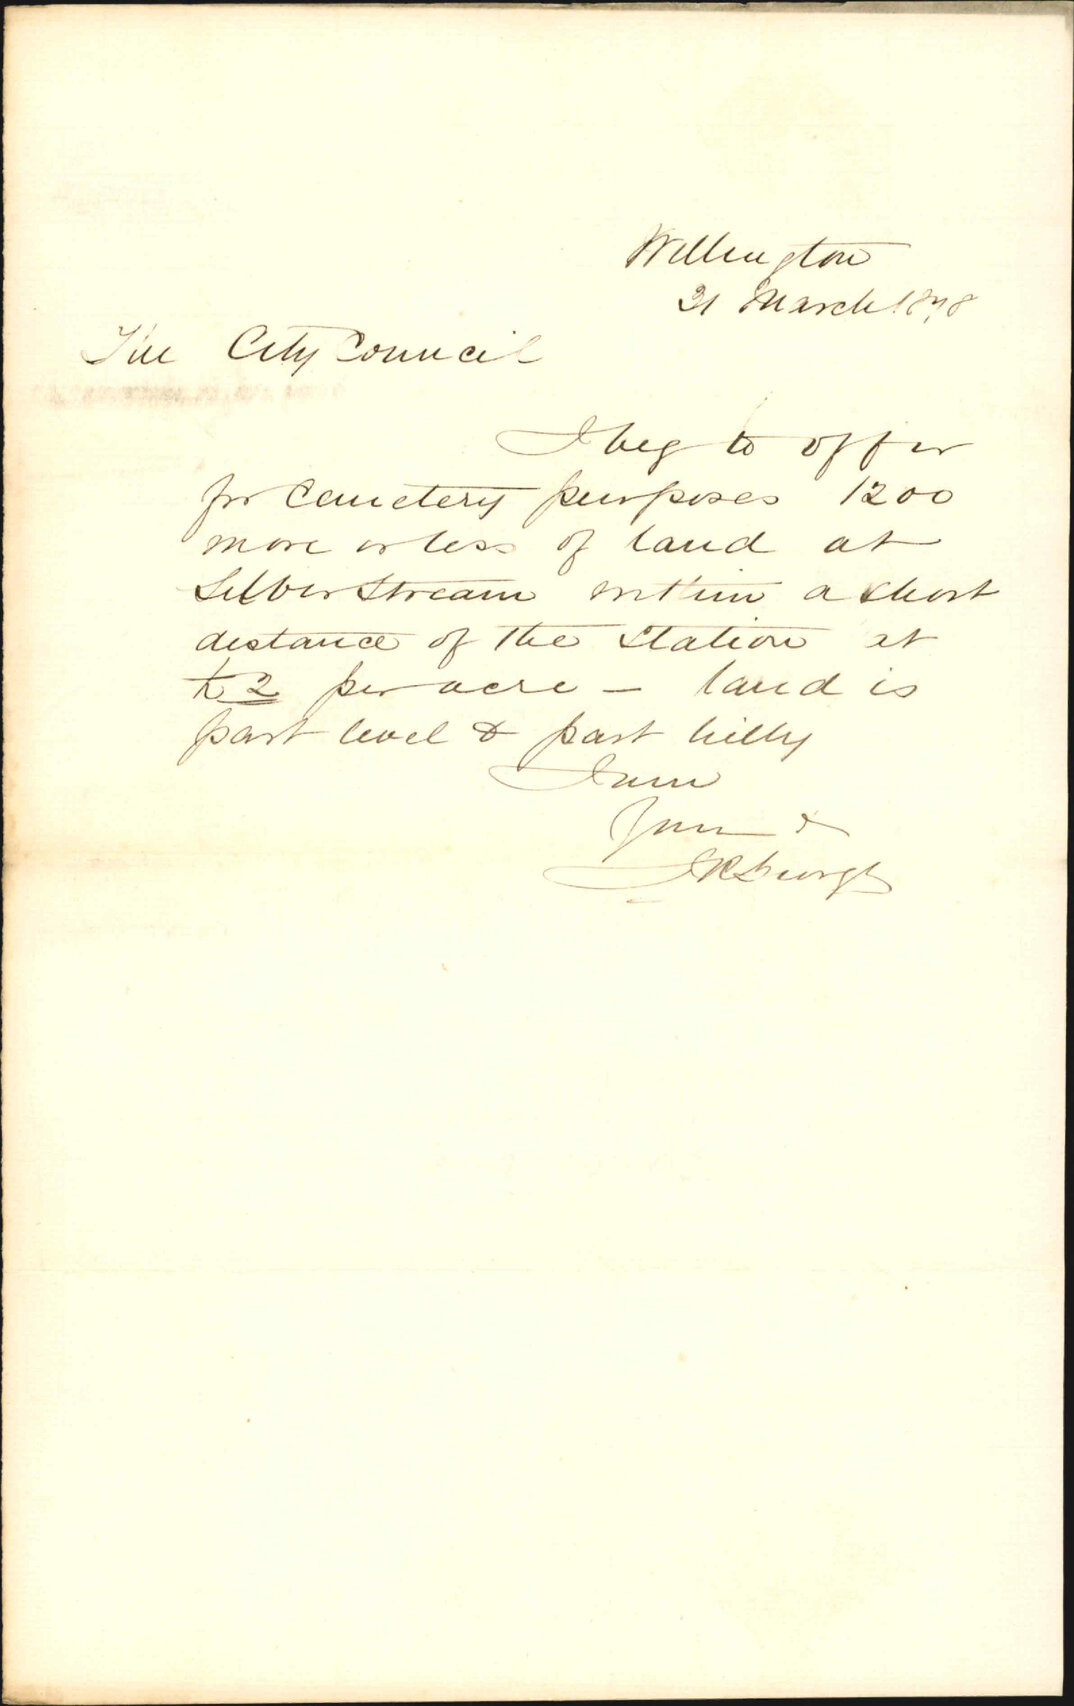 Wellington
21 March 1878
The City Council
I beg to offer
for Cemetery purposes 1200
more or less of land at
Silver Stream within a short
distance of the Station at
£2 per acre – land is
part level & part hilly
I am
Yours &
J R George